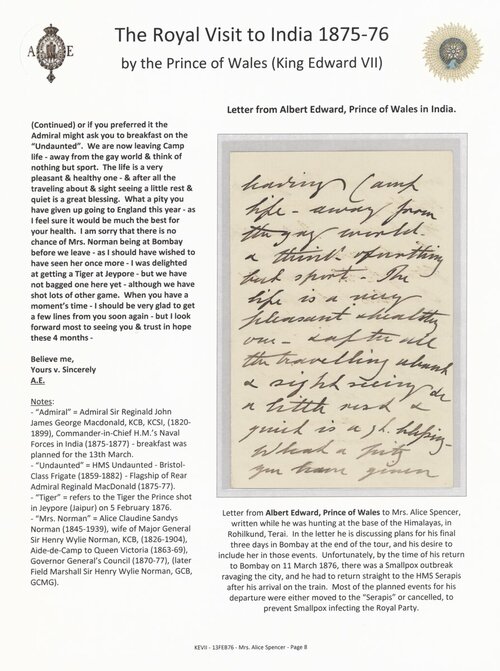 The Royal Visit to India 1875-76
by the Prince of Wales (King Edward VII)
A E
Letter from Albert Edward, Prince of Wales in India.
(Continued) or if you preferred it the
Admiral might ask you to breakfast on the
"Undaunted". We are now leaving Camp
life - away from the gay world & think of
nothing but sport. The life is a very
pleasant & healthy one - & after all the
traveling about & sight seeing a little rest &
quiet is a great blessing. What a pity you
have given up going to England this year - as
I feel sure it would be much the best for
your health. I am sorry that there is no
chance of Mrs. Norman being at Bombay
before we leave - as I should have wished to
have seen her once more - I was delighted
at getting a Tiger at Jeypore - but we have
not bagged one here yet - although we have
shot lots of other game. When you have a
moment's time - I should be very glad to get
a few lines from you soon again - but I look
forward most to seeing you & trust in hope
these 4 months -
Believe me,
Yours v. Sincerely
A.E.
Notes:
- "Admiral" = Admiral Sir Reginald John
James George Macdonald, KCB, KCSI, (1820-
1899), Commander-in-Chief H.M.'s Naval
Forces in India (1875-1877) - breakfast was
planned for the 13th March.
- "Undaunted" = HMS Undaunted - Bristol-
Class Frigate (1859-1882) - Flagship of Rear
Admiral Reginald MacDonald (1875-77).
- "Tiger" = refers to the Tiger the Prince shot
in Jeypore (Jaipur) on 5 February 1876.
- "Mrs. Norman" = Alice Claudine Sandys
Norman (1845-1939), wife of Major General
Sir Henry Wylie Norman, KCB, (1826-1904),
Aide-de-Camp to Queen Victoria (1863-69),
Governor General's Council (1870-77), (later
Field Marshall Sir Henry Wylie Norman, GCB,
GCMG).
leaving Camp
life - away from
the gay world
& think of nothing
but sport. The
life is a very
pleasant & healthy
one - & after all
the travelling about
& sight seeing
a little rest &
quiet is a gt. blessing -
What a pity
you have given
Letter from Albert Edward, Prince of Wales to Mrs. Alice Spencer,
written while he was hunting at the base of the Himalayas, in
Rohilkund, Terai. In the letter he is discussing plans for his final
three days in Bombay at the end of the tour, and his desire to
include her in those events. Unfortunately, by the time of his return
to Bombay on 11 March 1876, there was a Smallpox outbreak
ravaging the city, and he had to return straight to the HMS Serapis
after his arrival on the train. Most of the planned events for his
departure were either moved to the "Serapis" or cancelled, to
prevent Smallpox infecting the Royal Party.
KEVII - 13FEB76 - Mrs. Alice Spencer - Page 8